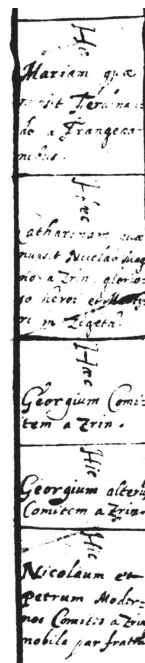 Hic
Mariam quæ
nupsit Ferdinan-
do a Frangepa-
nibus.
Hæc
Catharinam quæ
nupsit Nicolao mag
no a Zrin glorio-
so heroi et Marty
ri in Zigeth
Hæc
Georgium Comi-
tem a Zrin.
Hic
Georgium alterū
Comitem a Zrin.
Hic
Nicolaum et
Petrum Moder-
nos Comites a Zrin
nobile par fratrū